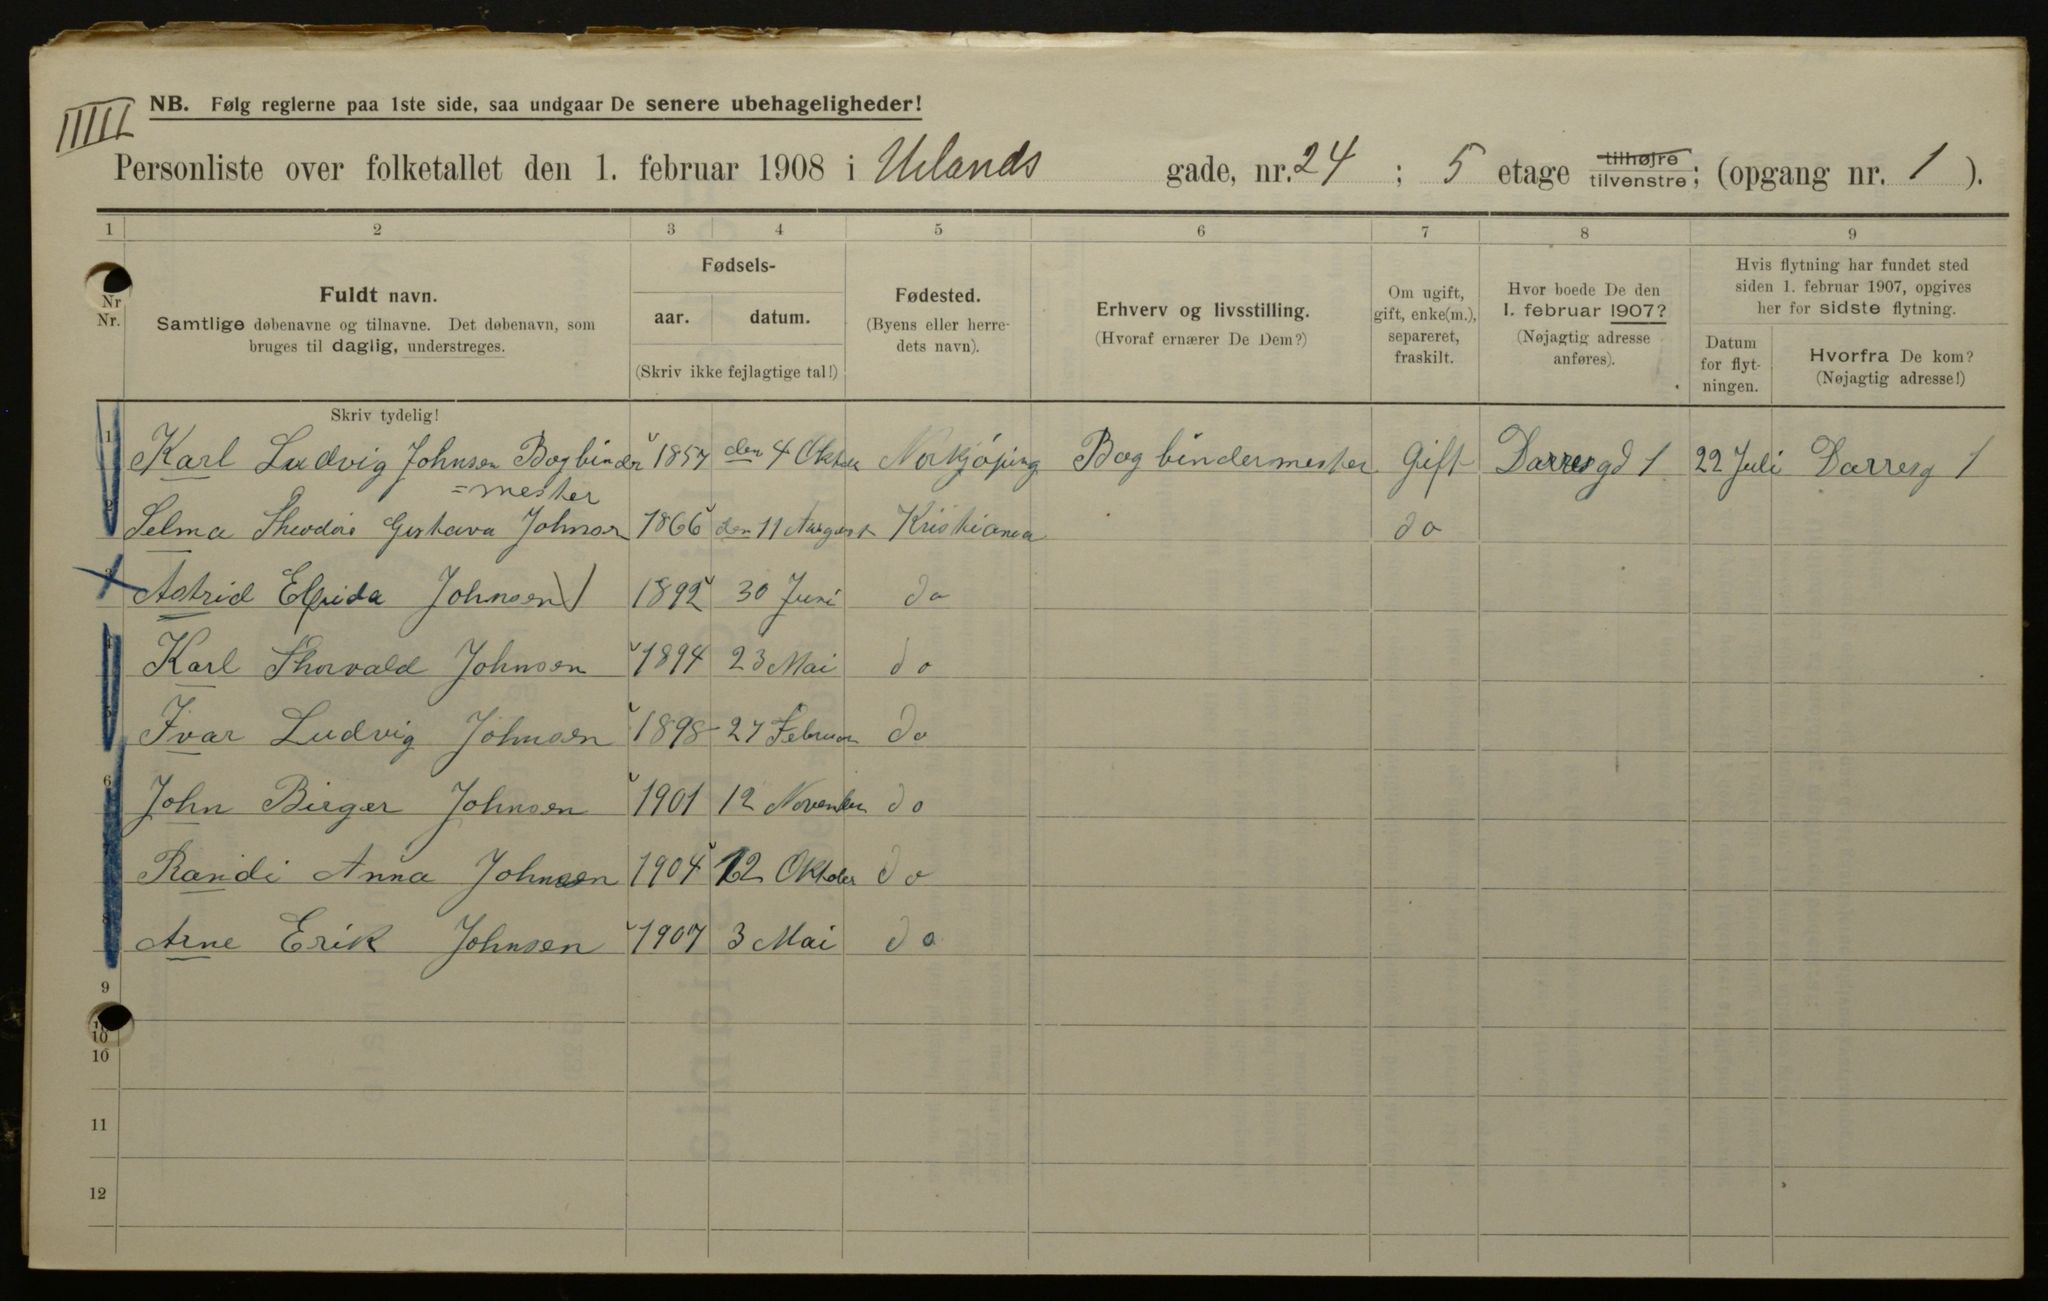 NB. Følg reglerne paa 1ste side, saa undgaar De senere ubehageligheder!
Personliste over folketallet den 1. februar 1908 i Uelands gade, nr. 24 ; 5 etage tilhøjre tilvenstre; (opgang nr. 1 ).
1 2 3 4 5 6 7 8 9
Nr Nr.
Fuldt navn.
Samtlige døbenavne og tilnavne. Det døbenavn, som
bruges til daglig, understreges.
Skriv tydelig!
Fødsels-
aar. datum.
(Skriv ikke fejlagtige tal!)
Fødested.
(Byens eller herre-
dets navn).
Erhverv og livsstilling.
(Hvoraf ernærer De Dem?)
Om ugift,
gift, enke(m.),
separeret,
fraskilt.
Hvor boede De den
1. februar 1907?
(Nøjagtig adresse
anføres).
Hvis flytning har fundet sted
siden 1. februar 1907, opgives
her for sidste flytning.
Datum
for flyt-
ningen.
Hvorfra De kom?
(Nøjagtig adresse!)
1 Karl Ludvig Johnsen Bogbinder 1857 den 4 Oktober Norkjöping Bogbindermester Gift Darresgd 1 22 Juli Darresg 1
=mester
2 Selma Theodore Gustava Johnsen 1866 den 11 August Kristiania do
3 Astrid Elfrida Johnsen 1892 30 Juni do
4 Karl Thorvald Johnsen 1894 23 Mai do
5 Ivar Ludvig Johnsen 1898 27 Februar do
6 John Birger Johnsen 1901 12 November do
7 Randi Anna Johnsen 1904 12 Oktober do
8 Arne Erik Johnsen 1907 3 Mai do
9
10
10
10
11
12